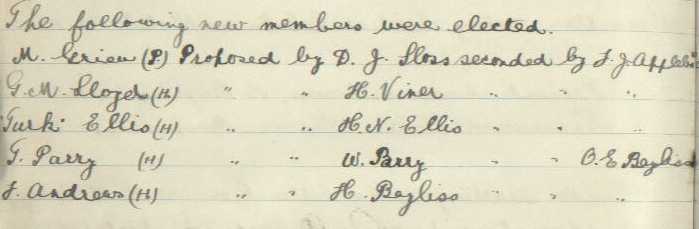 The following new members were elected.
M. (P) Proposed by D. J. Sloss seconded by F. J. Appleb
G. M. Lloyd (H) " " H. Viner " " "
Turk Ellis (H) " " H. N. Ellis " " "
T. Parry (H) " " W. Parry " " O. E. Bayliss
F. Andrews (H) " " H. Bayliss " " "